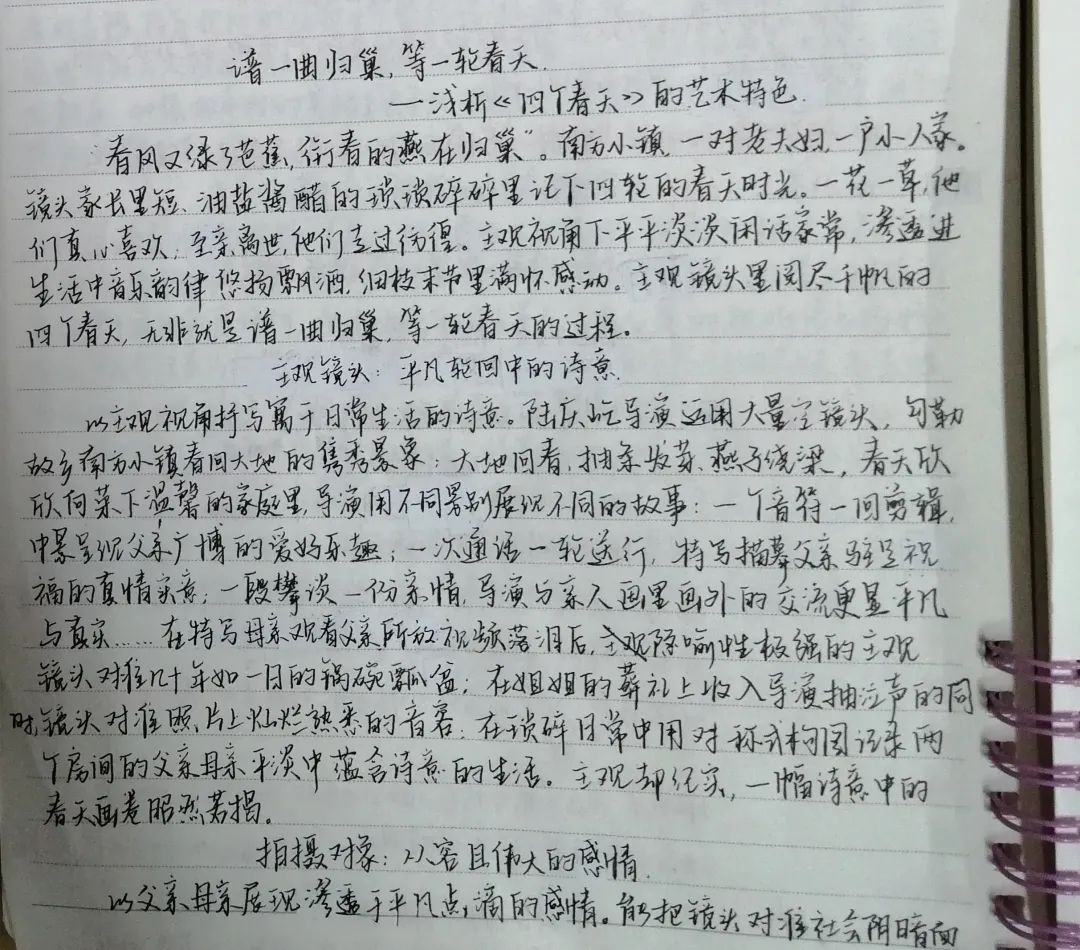 谱一曲归巢，等一轮春天.
——浅析《四个春天》的艺术特色.
"春风又绿了芭蕉，衔春的燕在归巢"。南方小镇，一对老夫妇，一户小人家。
镜头家长里短、油盐酱醋的琐琐碎碎里记下四轮的春天时光。一花一草，他
们真心喜欢，至亲离世，他们走过彷徨。主观视角下平平淡淡闲话家常，渗透进
生活中音乐韵律悠扬飘洒，细枝末节里满怀感动。主观镜头里阅尽千帆的
四个春天，无非就是谱一曲归巢，等一轮春天的过程。
主观镜头：平凡轮回中的诗意.
以主观视角抒写寓于日常生活的诗意。陆庆屹导演运用大量空镜头，勾勒
故乡南方小镇春回大地的隽秀景象：大地回春，抽条发芽，燕子绕梁，春天欣
欣向荣下温馨的家庭里，导演用不同景别展现不同的故事：一个音符一间剪辑，
中景呈现父亲广博的爱好乐趣；一次通话一轮送行，特写描摹父亲驻足祝
福的真情实意；一段攀谈一份亲情，导演与亲人画里画外的交流更显平凡
与真实……在特写母亲观看父亲所放视频落泪后，主观隐喻性极强的主观
镜头对准几十年如一日的锅碗瓢盆；在姐姐的葬礼上收入导演抽泣声的同
时，镜头对准照片上灿烂熟悉的音容；在琐碎日常中用对称式构图记录两
个房间的父亲母亲平淡中蕴含诗意的生活。主观却纪实，一幅诗意中的
春天画卷昭然若揭。
拍摄对象：从容且伟大的感情.
以父亲母亲展现渗透于平凡点滴的感情。能把镜头对准社会阴暗面